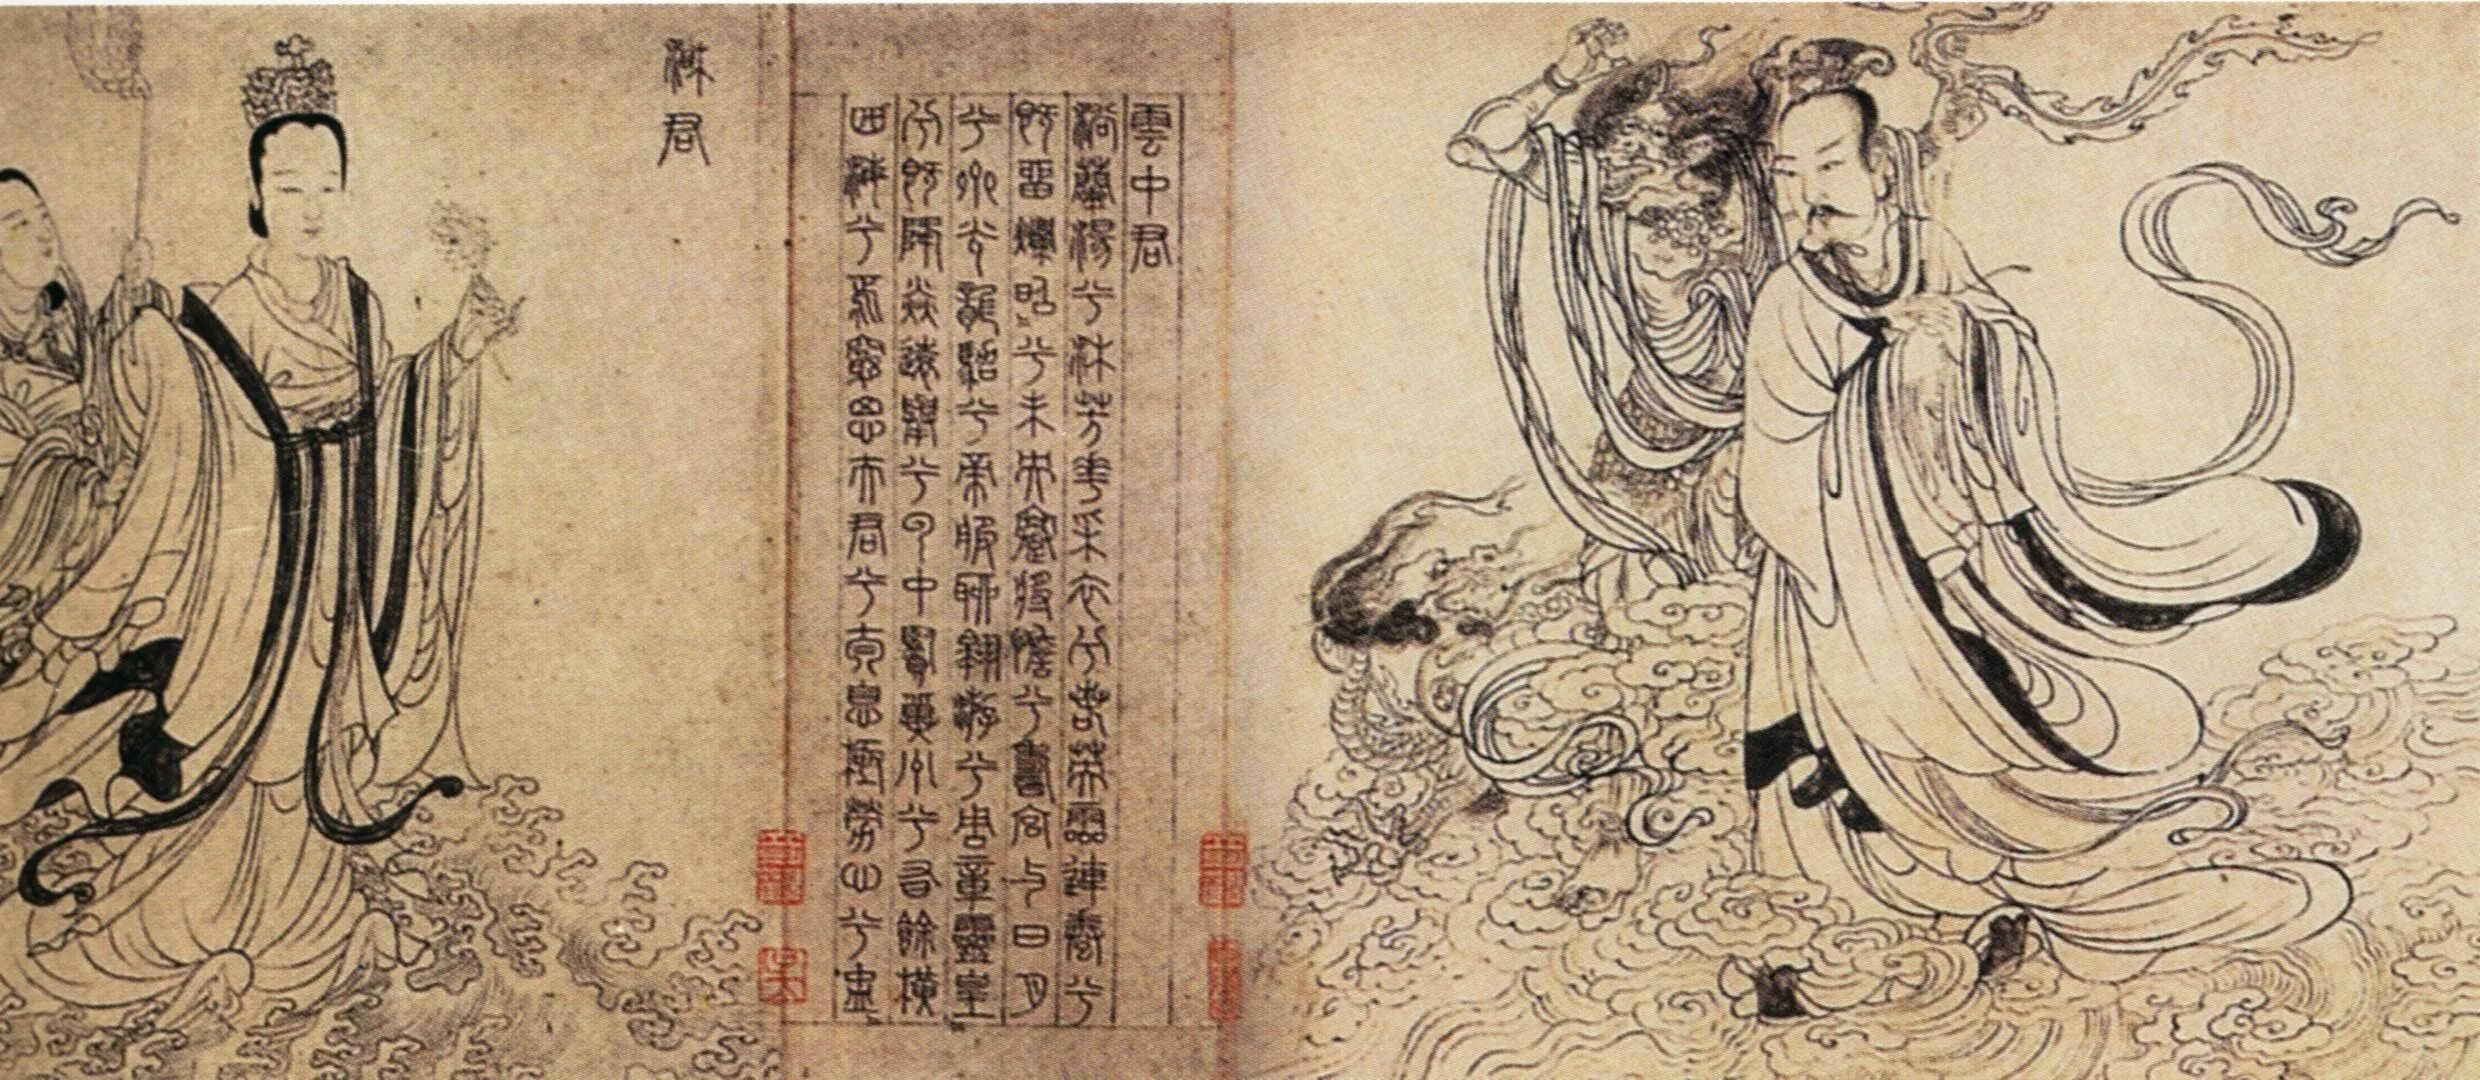 雲中君
浴蘭湯兮沐芳華采衣兮若英靈連蜷兮
既留爛昭〻兮未央蹇將憺兮壽宮與日月
兮齊光龍駕兮帝服聊翱遊兮周章靈皇〻
兮既降猋遠舉兮雲中覽冀州兮有餘橫
四海兮焉窮思夫君兮太息極勞心兮忡〻
湘君